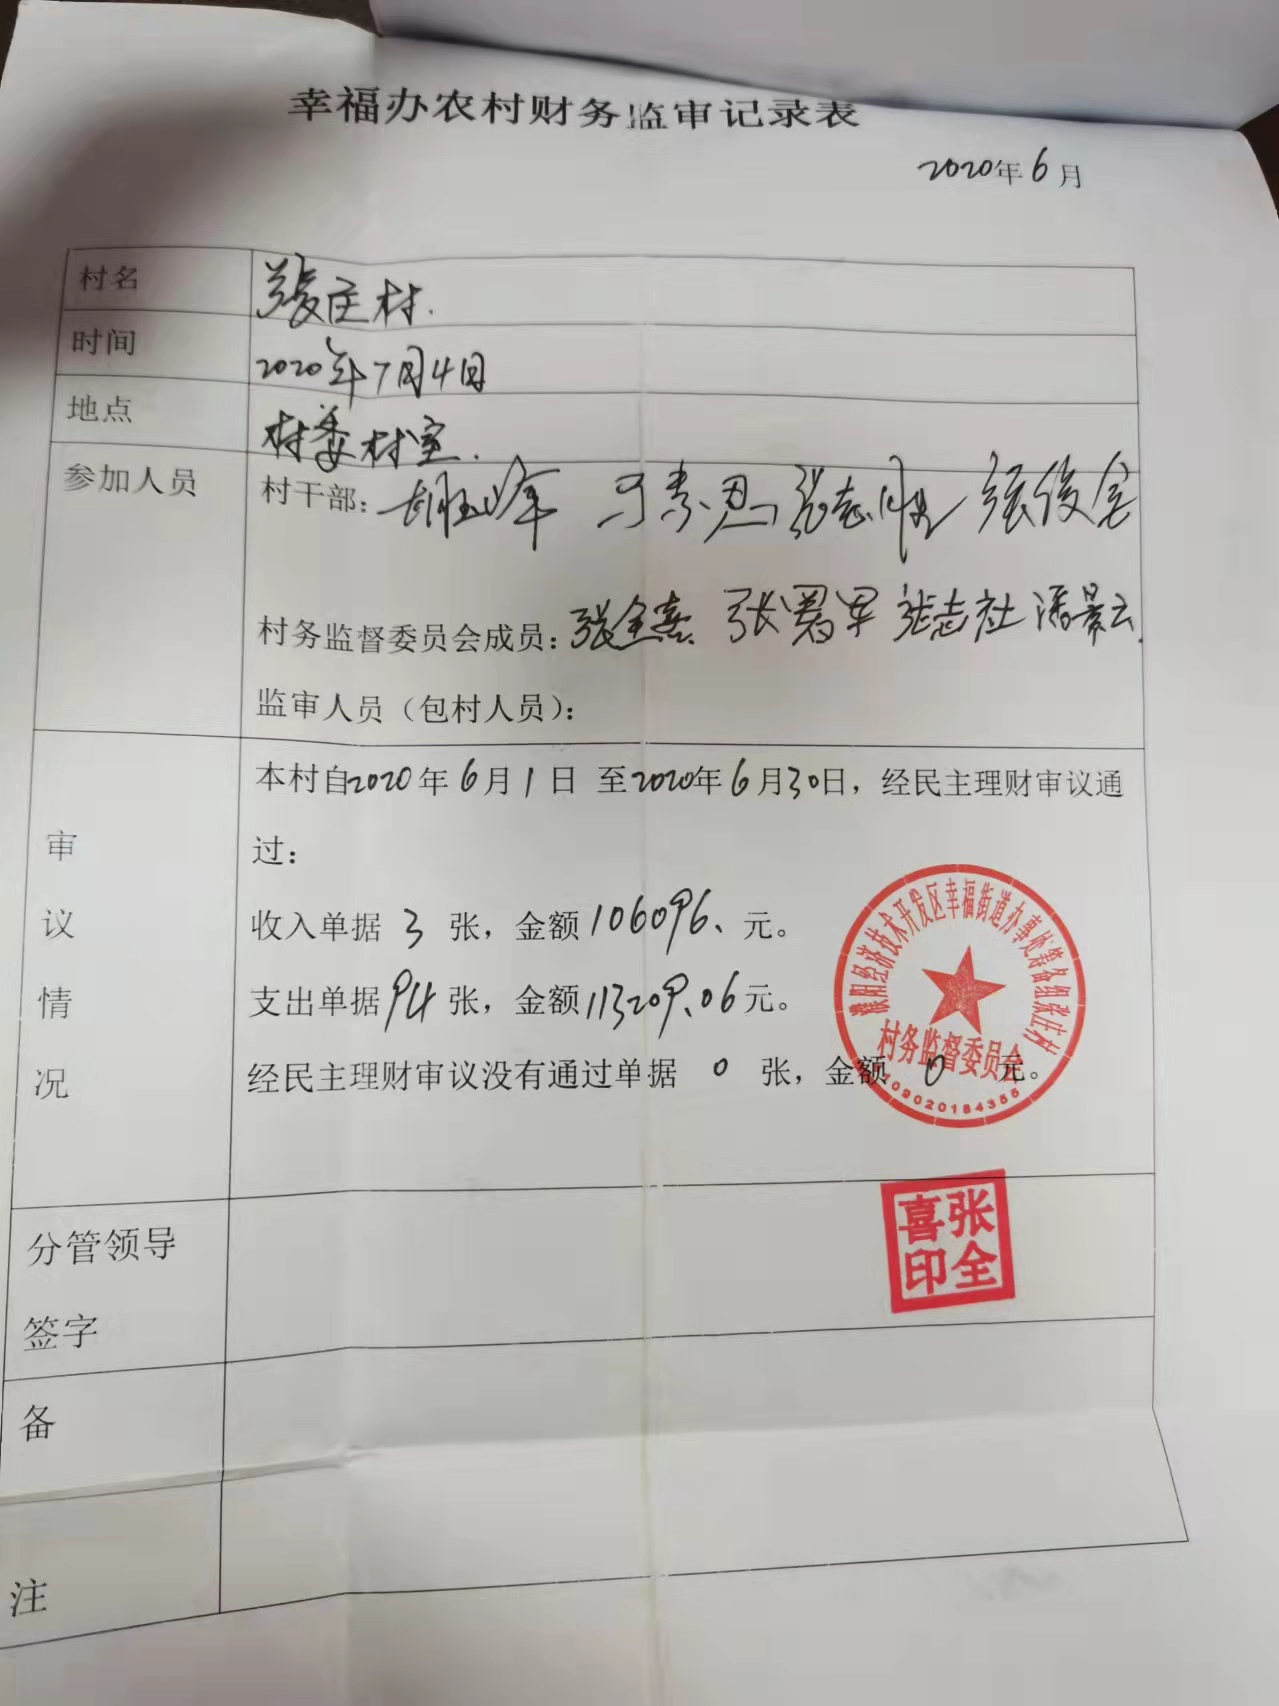 幸福办农村财务监审记录表
2020年6月
村名 张庄村.
时间 2020年7月4日
地点 村委村室.
参加人员 村干部:
村务监督委员会成员: 张全喜 张志社 潘景云
监审人员(包村人员):
审议情况
本村自2020年6月1日 至2020年6月30日,经民主理财审议通
过:
收入单据 3 张,金额106096、元。
支出单据94张,金额113209.06元。
经民主理财审议没有通过单据 0 张,金额 0 元。
濮阳经济技术开发区幸福街道办事处筹备组张庄村
村务监督委员会
109020184355
分管领导
签字
张全喜印
备
注